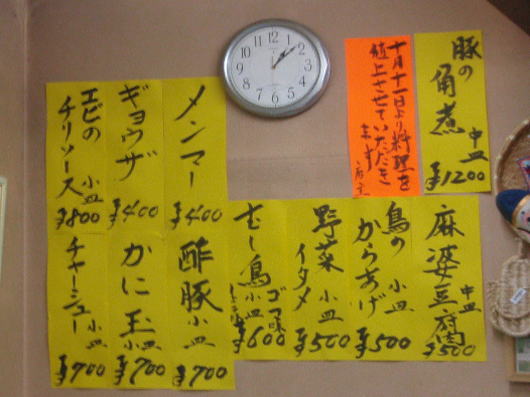 豚の角煮
中皿
¥1200
十月十一日より料理を
値上させていただき
ます
店主
メンマー
¥400
ギョウザ
¥400
エビの
チリソース
小皿
¥800
麻婆豆腐
中皿
¥500
鳥の
からあげ
小皿
¥500
野菜
イタメ
小皿
¥500
むし鳥
ゴマ味
小皿
¥600
酢豚
小皿
¥700
かに玉
小皿
¥700
チャーシュー
小皿
¥700